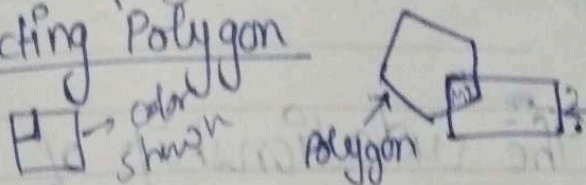 cting Polygon
color
shown
polygon